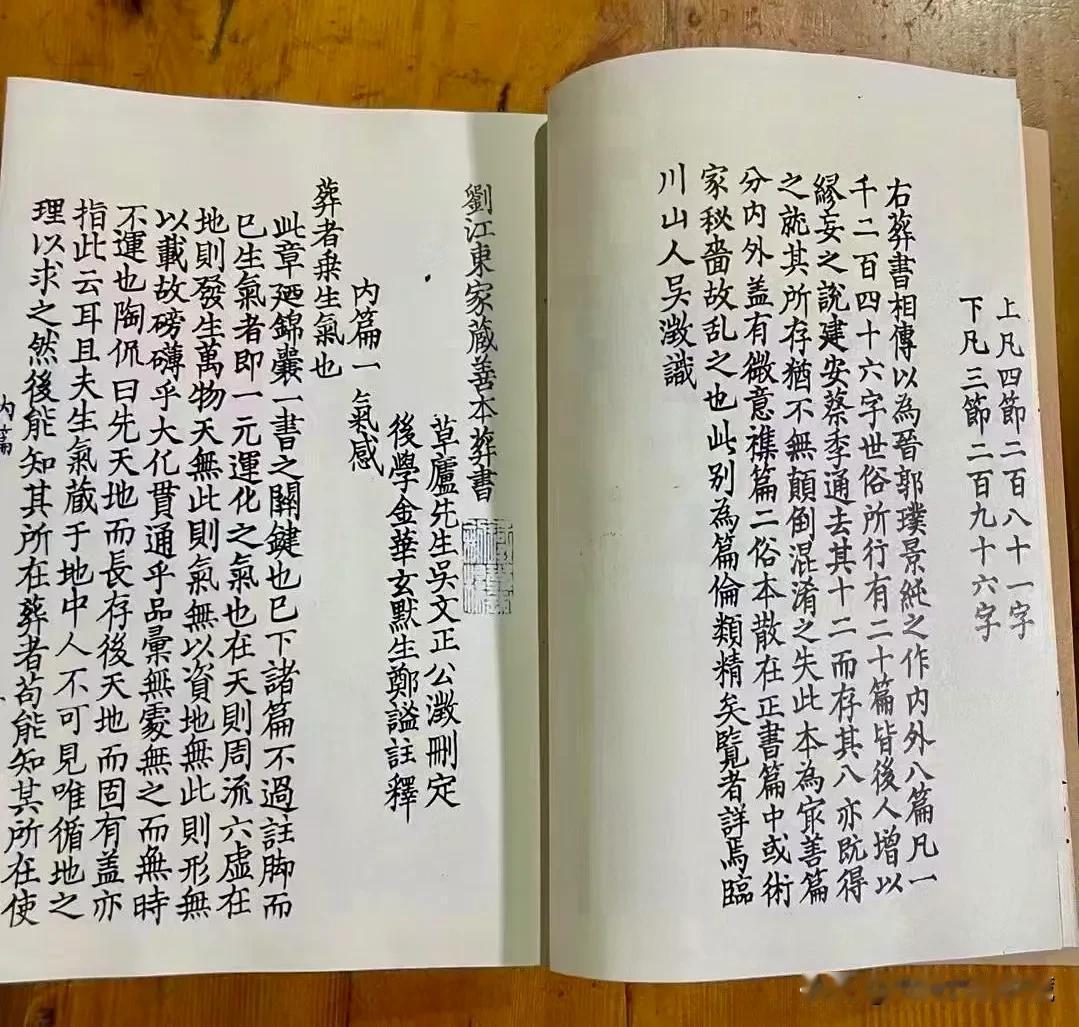 上凡四節二百八十一字
下凡三節二百九十六字
右葬書相傳以為晉郭璞景純之作內外八篇凡一
千二百四十六字世俗所行有二十篇皆後人增以
繆妄之說建安蔡季通去其十二而存其八亦既得
之就其所存猶不無顛倒混淆之失此本為㝡善篇
分內外盖有微意襍篇二俗本散在正書篇中或術
家秘嗇故乱之也此别為篇倫類精矣覽者詳焉臨
川山人吳澂識
劉江東家蔵善本葬書
草廬先生吳文正公澂刪定
後學金華玄默生鄭謐註釋
內篇一 氣感
葬者乗生氣也
此章廼錦囊一書之関鍵也已下諸篇不過註脚而
已生氣者即一元運化之氣也在天則周流六虚在
地則發生萬物天無此則氣無以資地無此則形無
以載故磅礴乎大化貫通乎品彙無處無之而無時
不運也陶侃曰先天地而長存後天地而固有盖亦
指此云耳且夫生氣蔵于地中人不可見唯循地之
理以求之然後能知其所在葬者苟能知其所在使
內篇